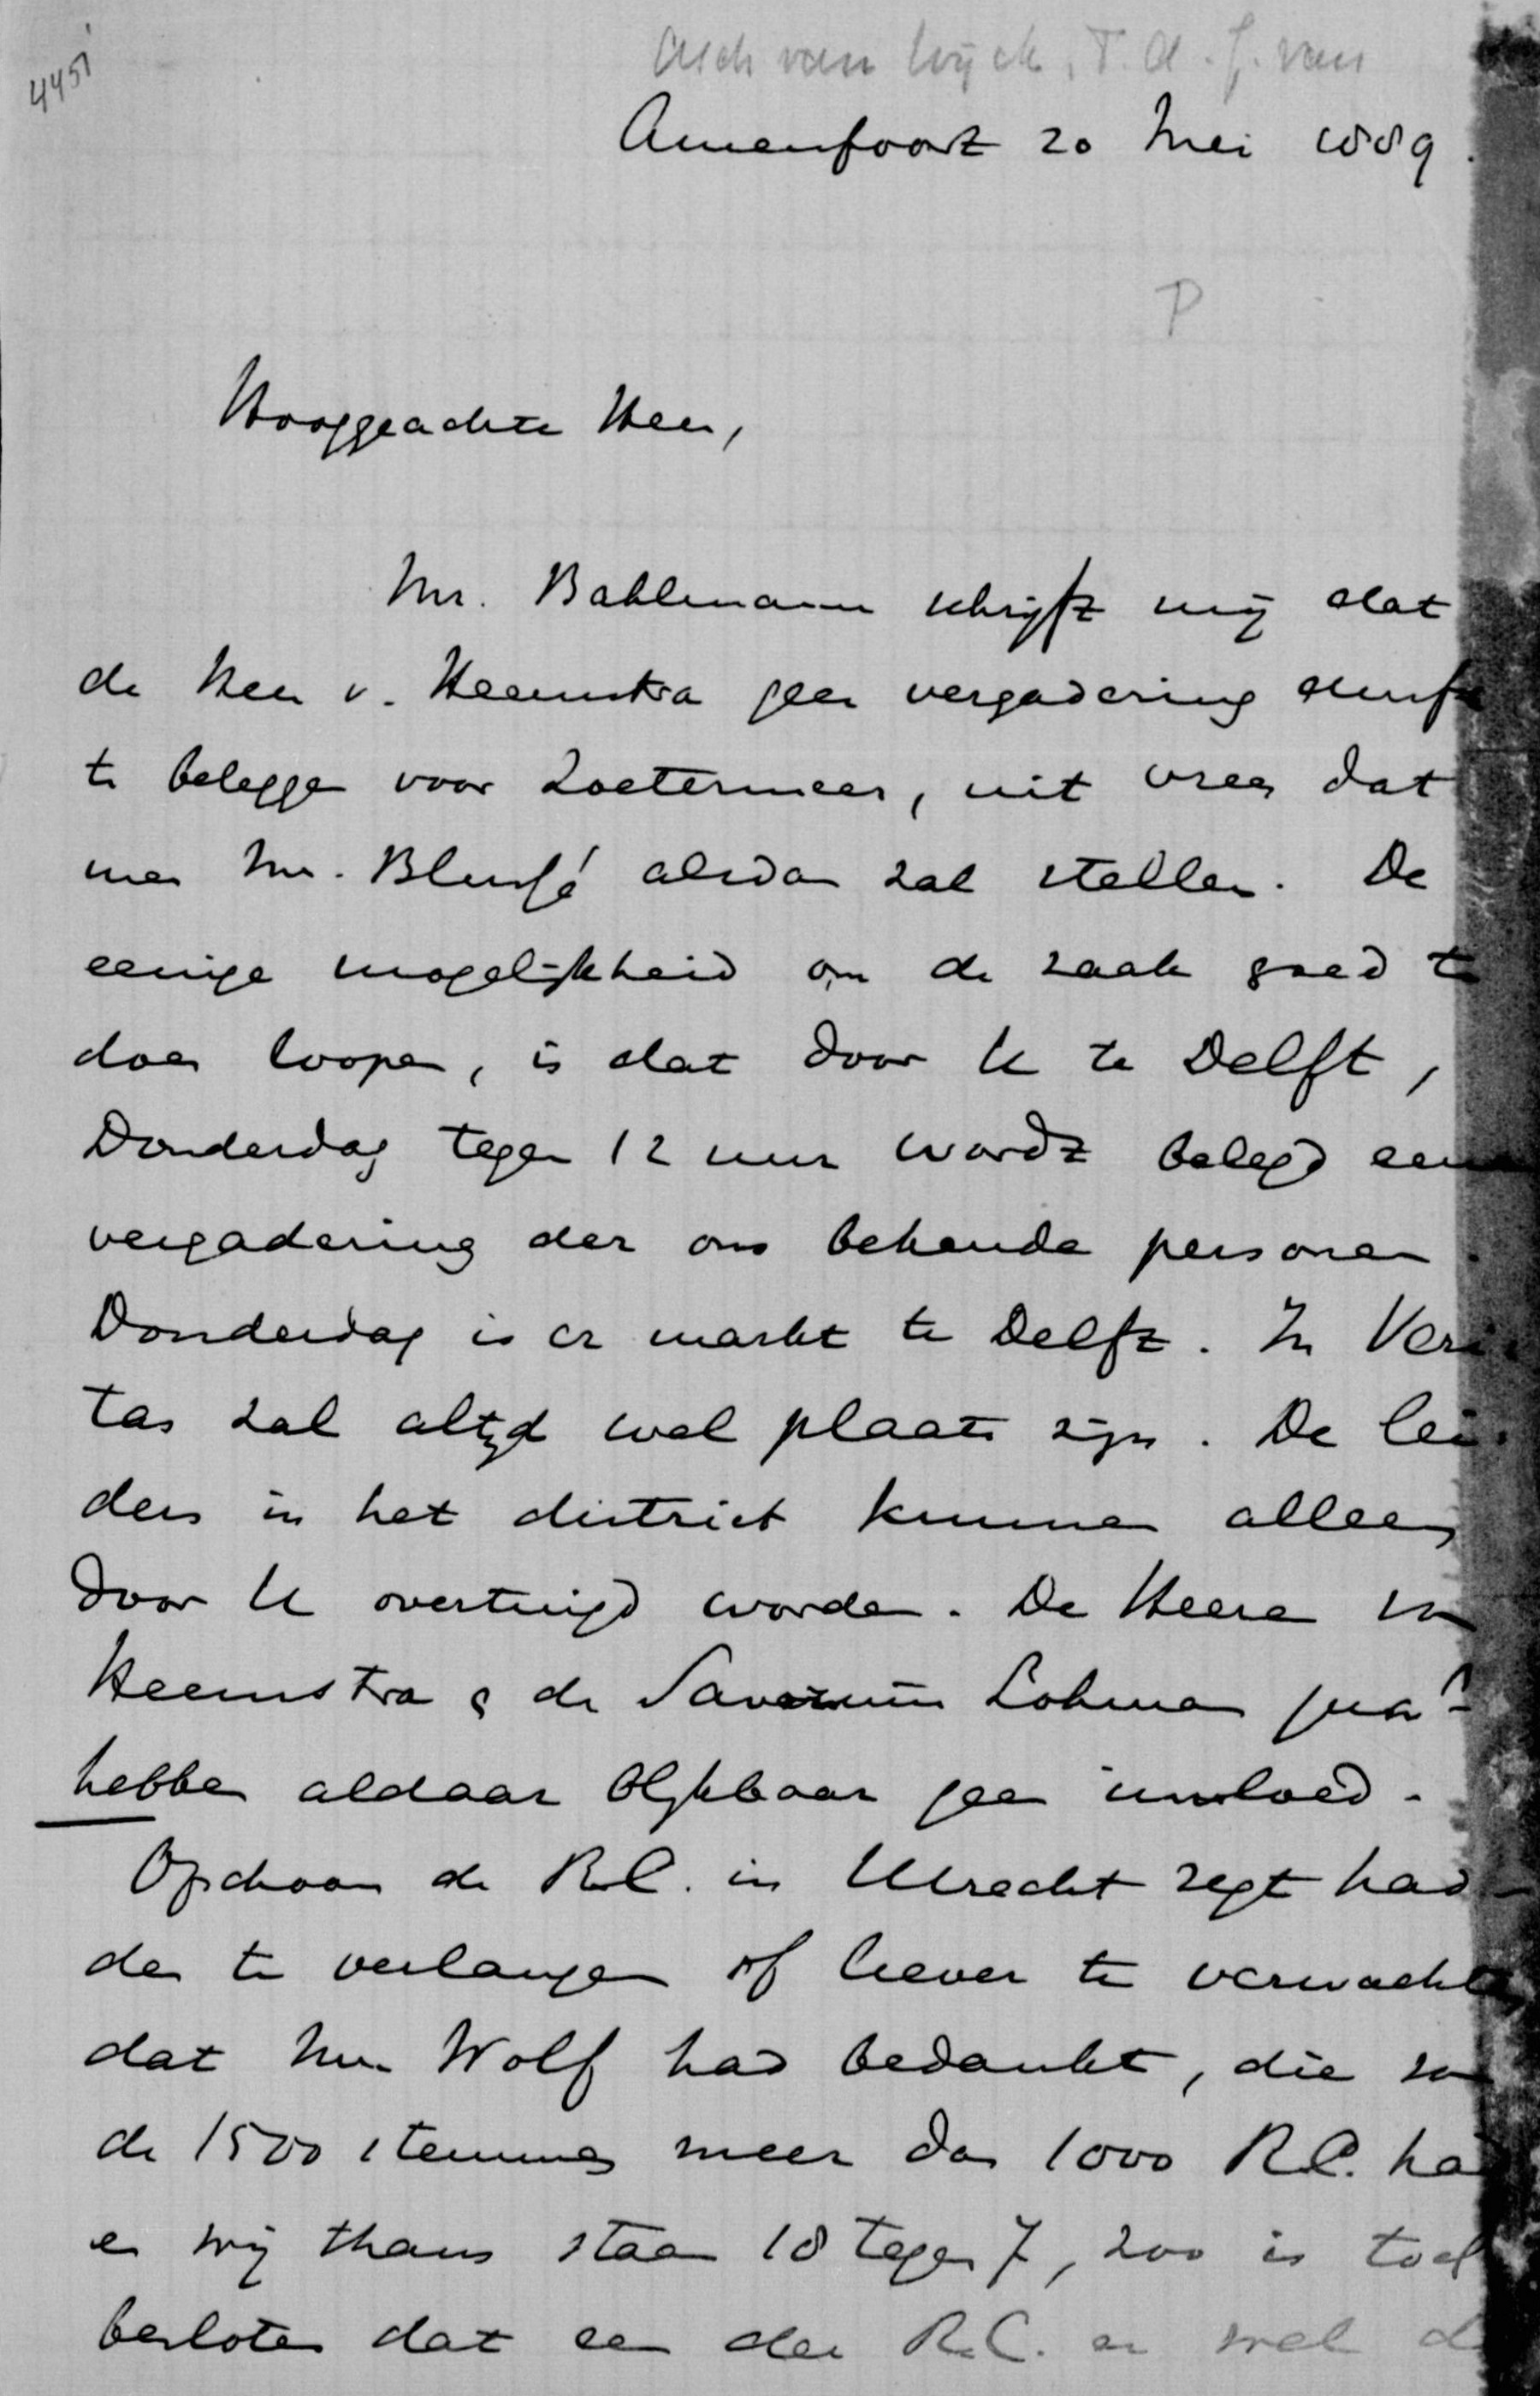 4451
Asch van Wijck, T. A. J. van
Amersfoort 20 Mei 1889.
P
Hooggeachte Heer,
Mr. Bahlmann schrijft mij dat
de Heer v. Heemstra geen vergadering durft
te beleggen voor Zoetermeer, uit vrees dat
men Mr. Blussé alsdan zal stellen. De
eenige mogelijkheid om de zaak goed te
doen loopen, is dat door U te Delft,
Donderdag tegen 12 uur wordt belegd eene
vergadering der ons bekende personen.
Donderdag is er markt te Delft. In Veri-
tas zal altijd wel plaats zijn. De lei-
ders in het district kunnen alleen
door U overtuigd worden. De Heeren van
Heemstra & de Savornin Lohman
hebben aldaar blijkbaar geen invloed.
Opschoon de R.C. in Utrecht regt had-
den te verlangen of liever te verwachten
dat Mr Wolf had bedankt, die van
de 1500 stemmen meer dan 1000 R.C. had
en wij thans staan 18 tegen 7, zoo is toch
besloten dat een der R.C. er wel